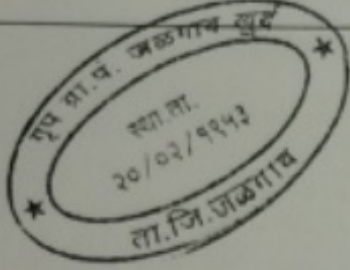 ग्रुप ग्रा.पं. जळगाव खुर्द
स्था.ता.
२०/०२/१९५३
ता.जि.जळगाव